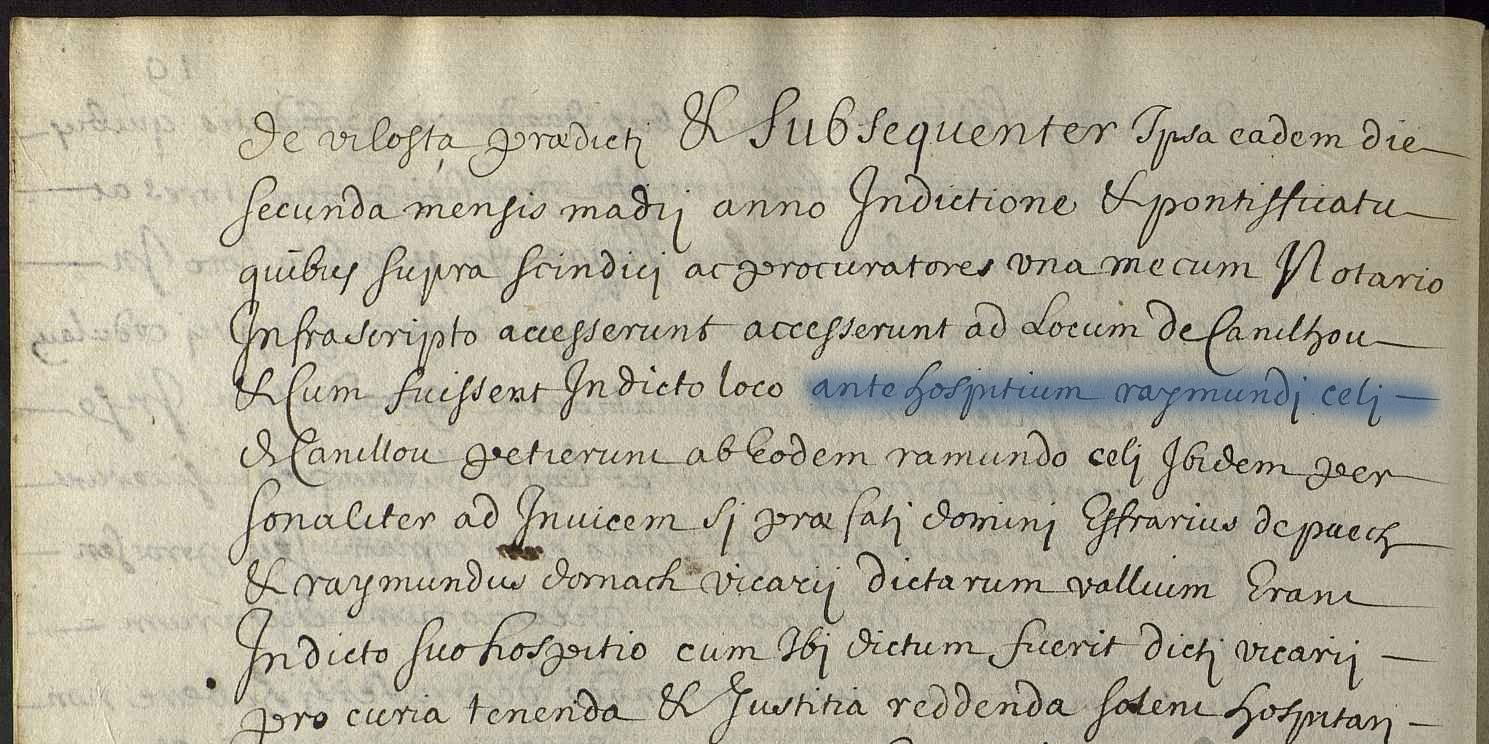 de vilosta prædicti & Subsequenter Ipsa eadem die
secunda mensis madij anno Indictione & pontifficatu
quibus supra scindici ac procuratores vna mecum Notario
Infrascripto accesserunt accesserunt ad Locum de Canilhou
& Cum fuissent In dicto loco ante hospitium raymundj celj
de Canillou petierunt ab Eodem ramundo celj Ibidem per
sonaliter ad Inuicem sj præfatj dominj Effrarius de puech
& raymundus dornach vicarij dictarum vallium Erant
In dicto suo hospitio cum Ibj dictum fuerit dictj vicarij
pro curia tenenda & Justitia reddenda solent hospitarj